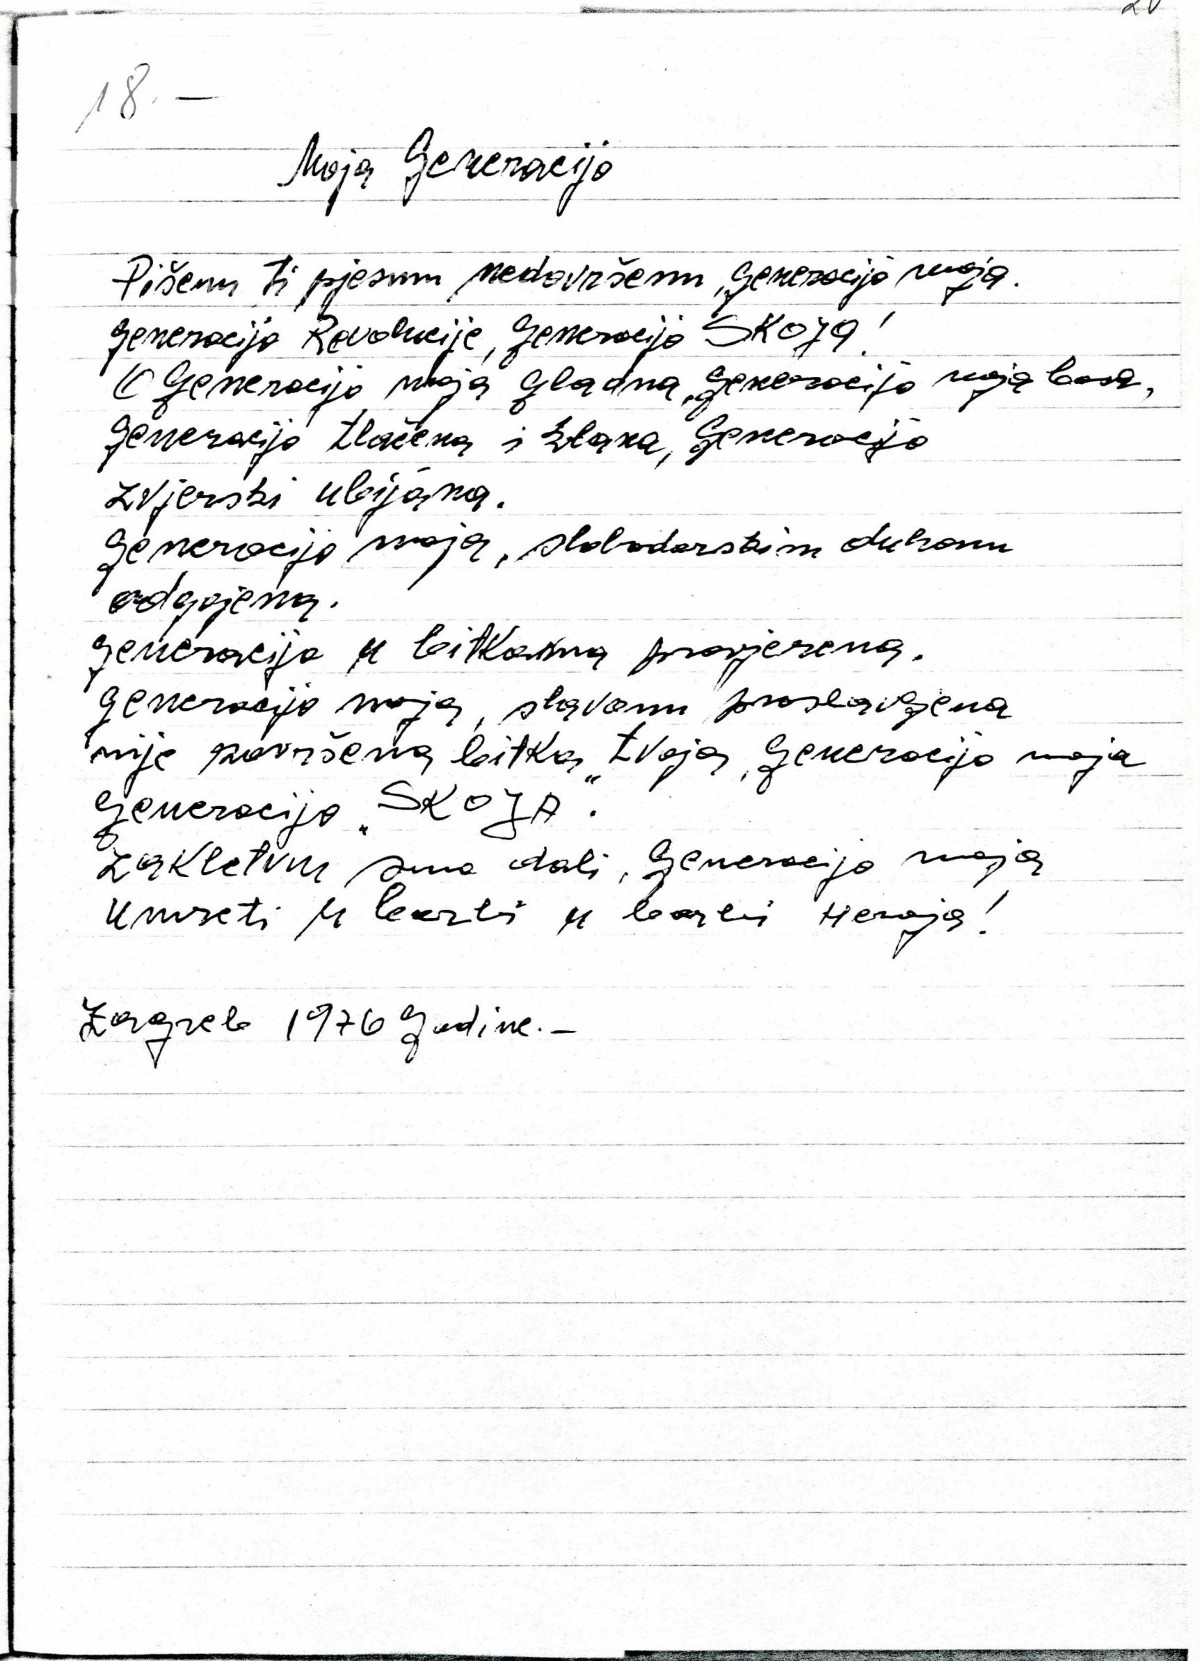 18.-
Moja Generacija
Pišem ti pjesmu nedovršenu, Generacijo moja.
Generacijo Revolucije, Generacijo SKOJA!
Generacijo moja gladna, Generacijo moja bosa,
Generacijo tlačena i klana, Generacijo
zvjerski ubijana.
Generacijo moja, slobodarskim duhom
odgojena.
Generacijo u bitkama provjerena.
Generacijo moja, slavom proslavljena
nije završena bitka tvoja, Generacijo moja
Generacijo „SKOJA".
Zakletvu smo dali, Generacijo moja
Umreti u borbi u borbi Heroja!
Zagreb 1976 Godine.-